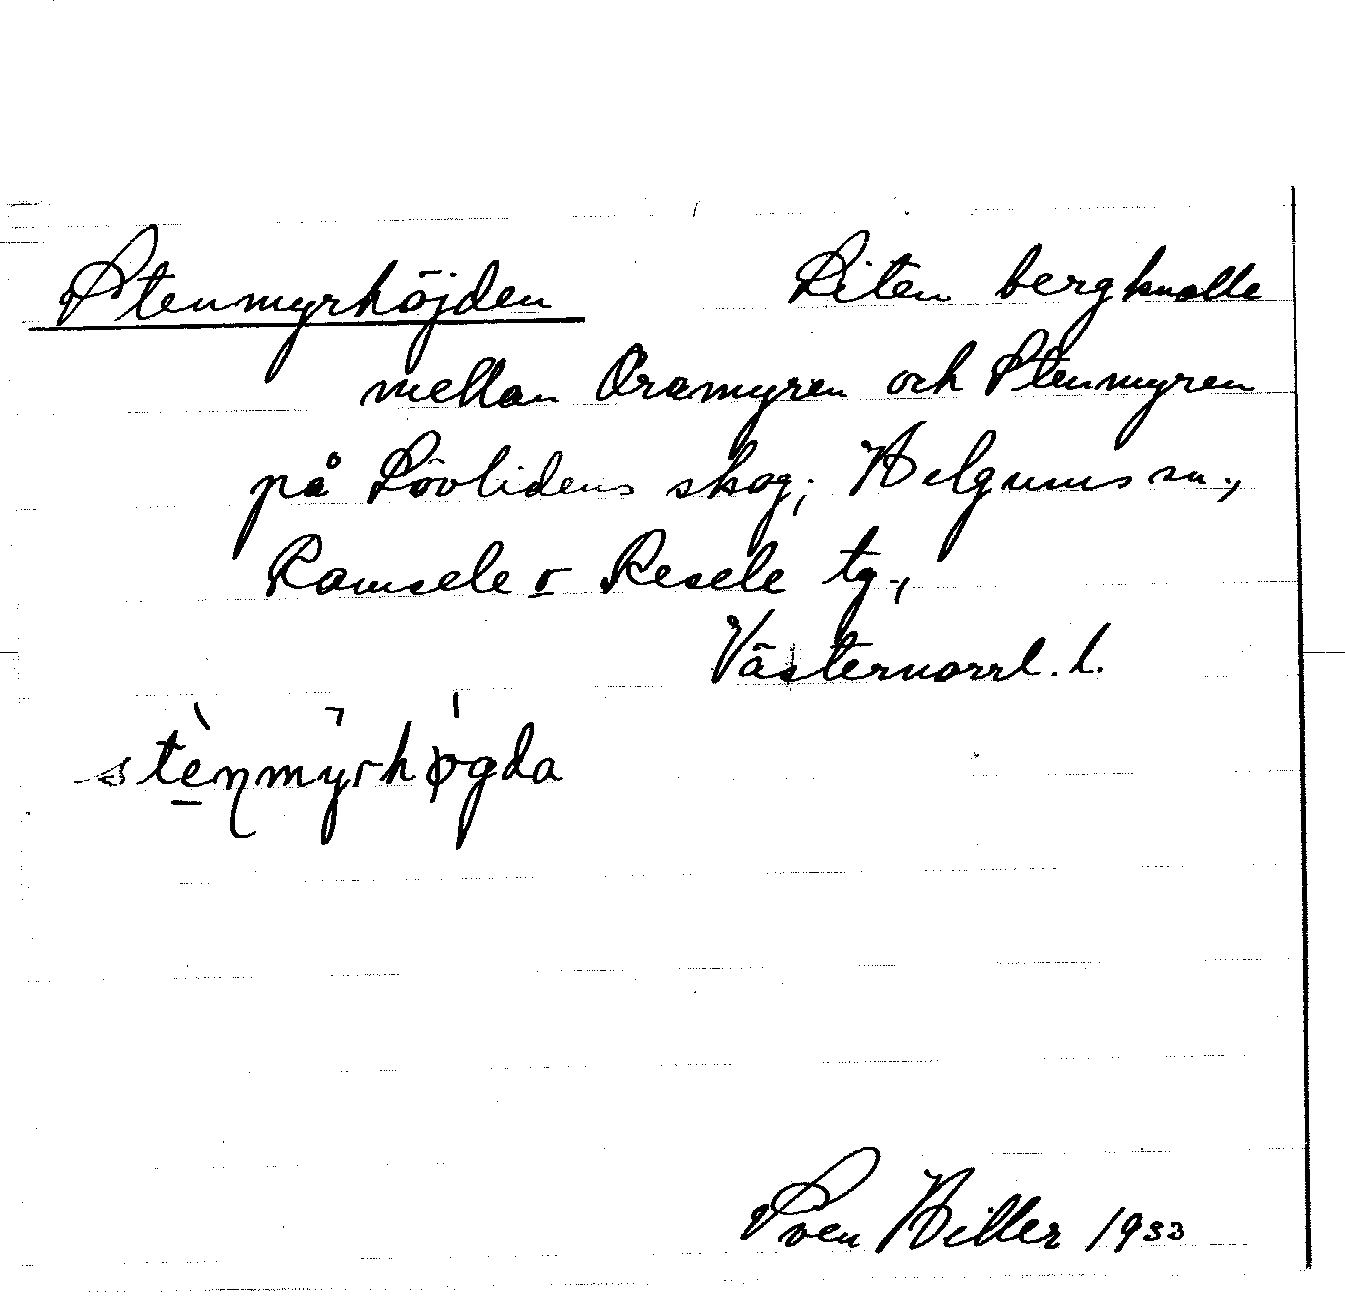 Stenmyrhöjden Liten bergknalle
mellan Oramyren och Stenmyren
på Lövlidens skog; Helgums sn.,
Ramsele o Resele tg.,
Västernorrl. l.
Sven Hiller 1933